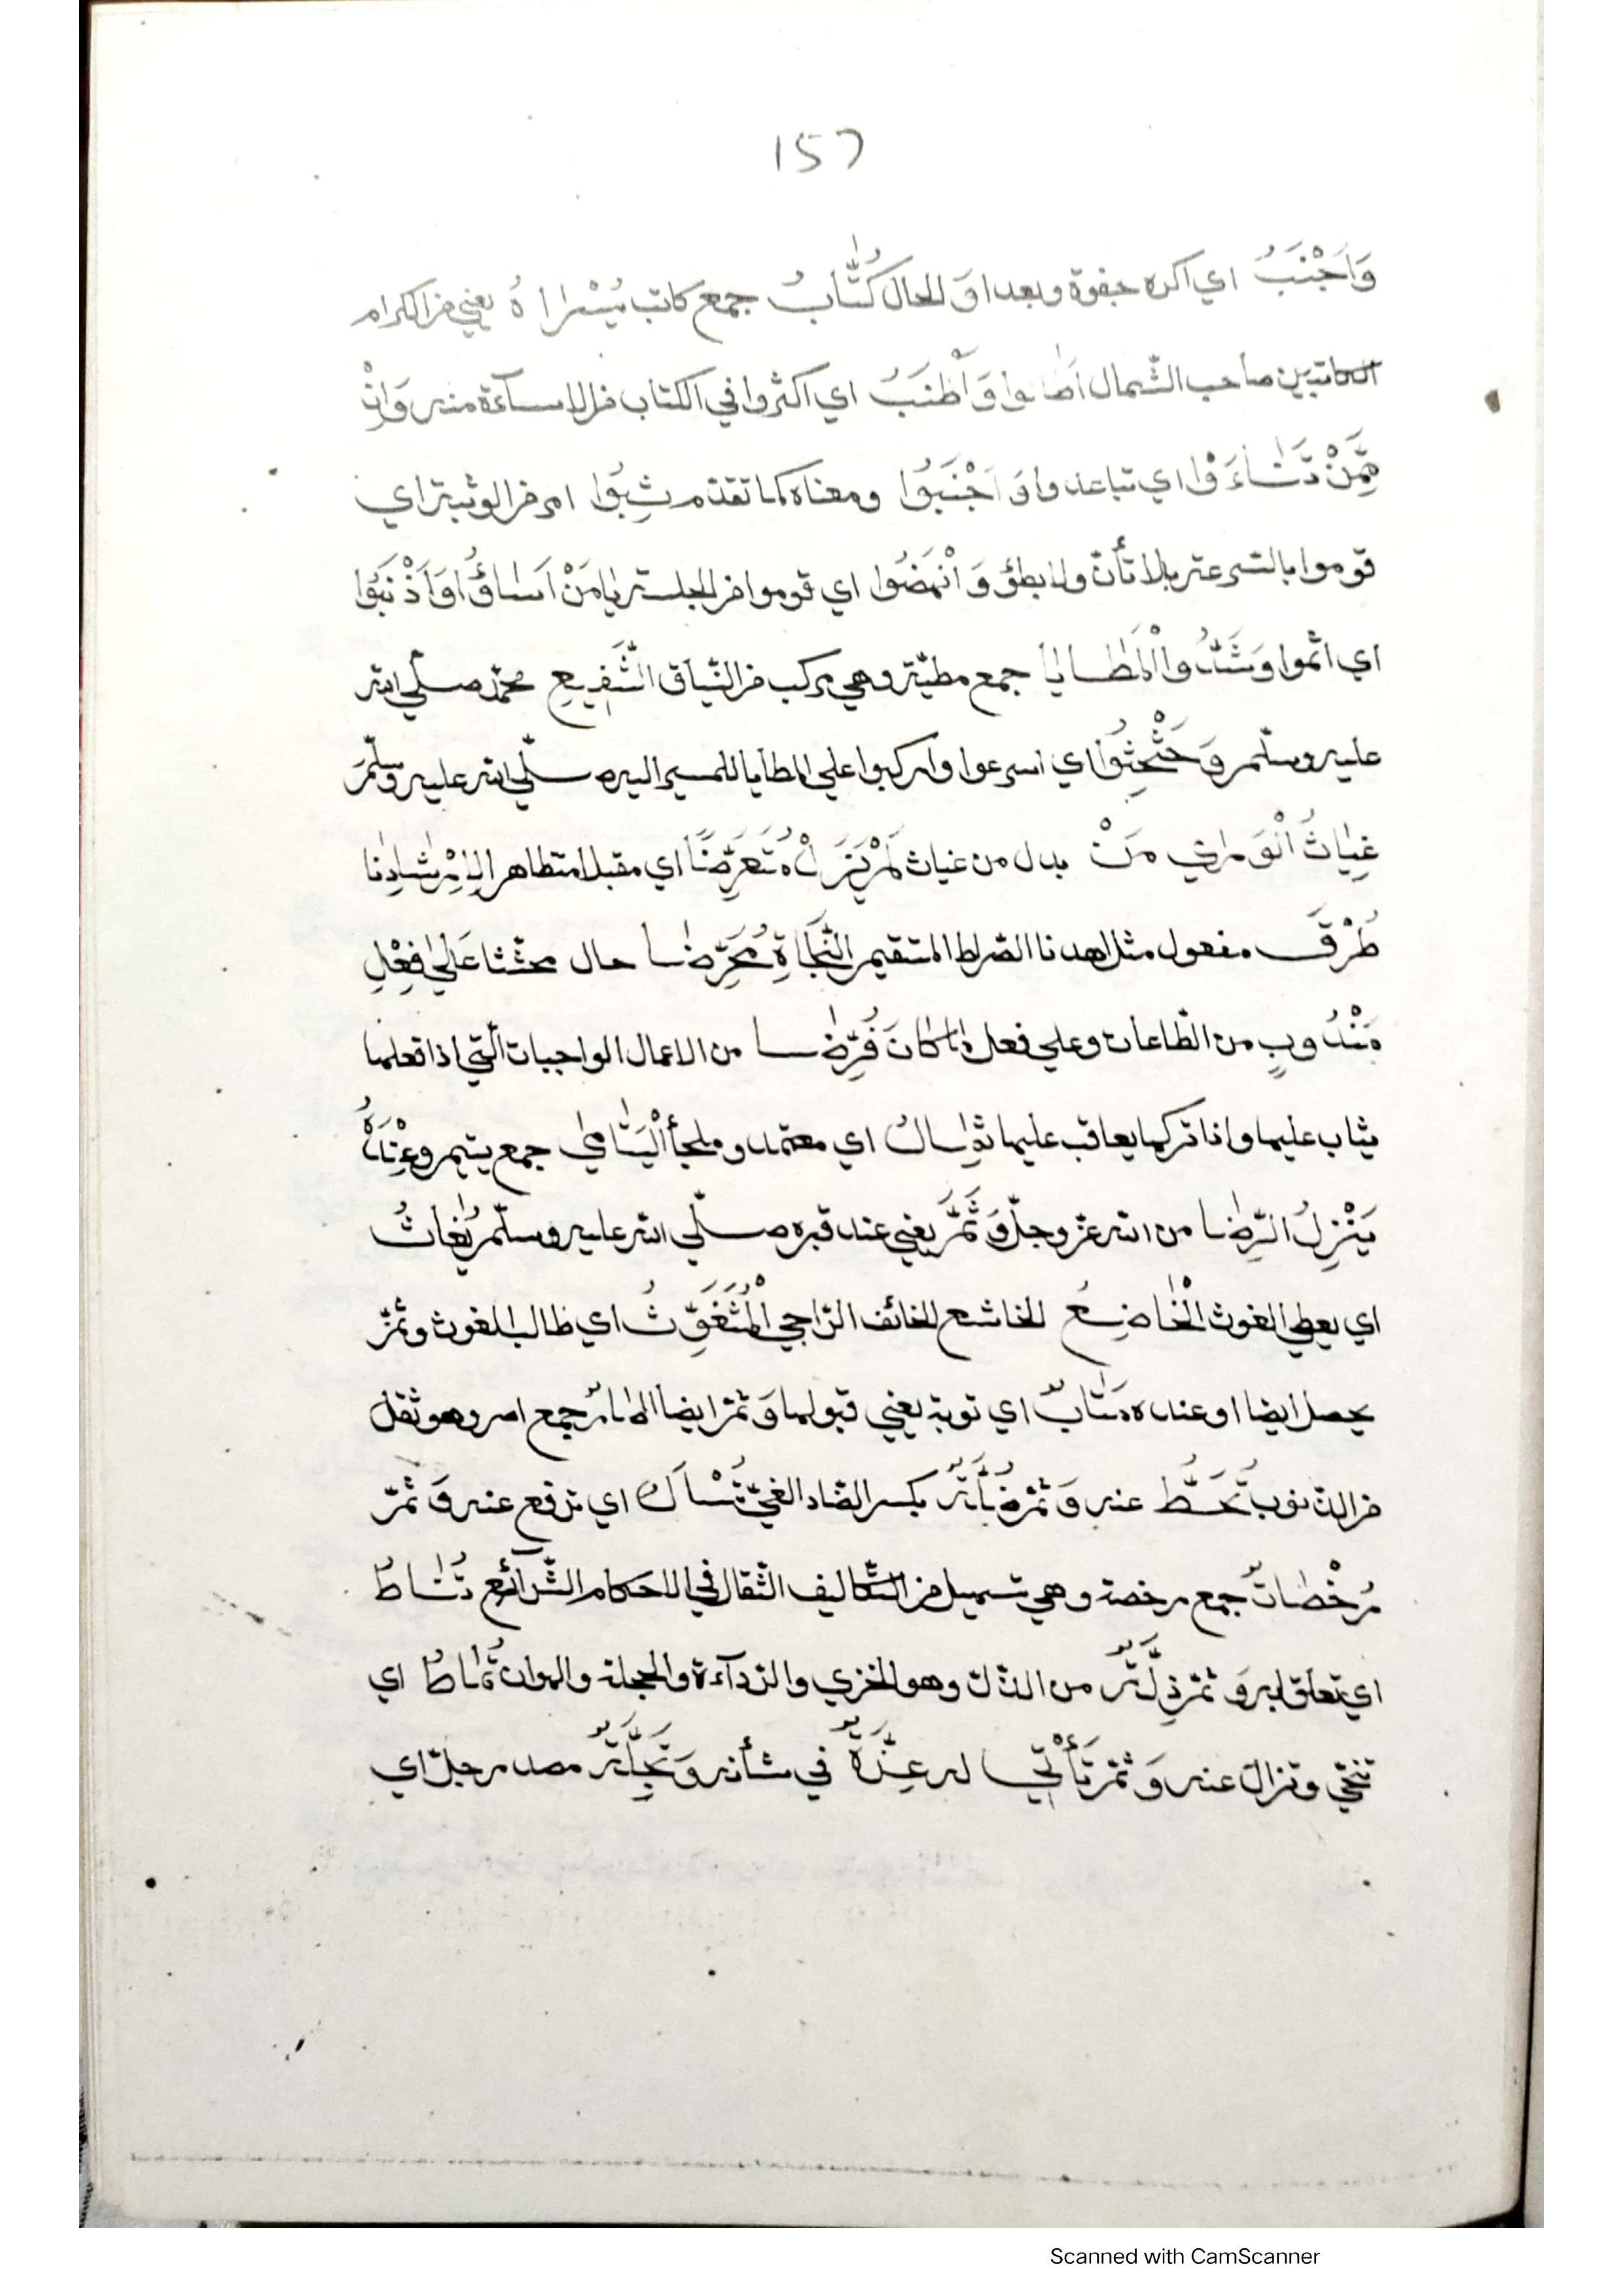 157
وَاَجْنَبُ اي اكره جفوة وبعدا وَ الحال كُتَّابُ جمع كاتب يُسْراهُ يعني من الكرام
الكاتبين صاحب الشّمال اَطالوا وَاَطْنَبُ اي اكثروا في الكتاب من الاساءة منه وَاِنْ
مِمَّنْ تَنَاءَوْا اي تباعدوا وَ اَجْنَبُوا ومعناه كما تقدّم ثِبُوا امر من الوثبة اي
قوموا بالسرعة بلا تأنّ ولا بطؤ وَ انْهَضُوا اي قوموا من الجلسة يا مَنْ اَسَاؤُا وَاَذْنَبُوا
اي اثموا وَشَدُّوا الْمَطَايَا جمع مطيّة وهي مركب من النّياق الشَّفِيعِ محمّد صلّي الله
عليه وسلّم وَحَثْحِثُوا اي اسرعوا واركبوا علي المطايا للمسير اليه صلّي الله عليه وسلّم
غِيَاثُ الْوَرٰي مَنْ بدل من غياث لَمْ يَزَلْ مُتَعَرِّضًا اي مقبلا متظاهرا لِاِرْشَادِنَا
طُرْقَ مفعول مثل اهدنا الصّراط المتقيم النَّجَاةِ مُحَرِّضا حال محثثا عَلٰي فِعْلِ
مَنْدُوبٍ من الطّاعات وعلي فعل مَا كَانَ فُرِّضَا من الاعمال الواجبات الّتي اذا تعلها
يثاب عليها واذا تركها يعاقب عليها ثِمالُ اي معتمد وملجأ الْيَتَامٰي جمع يتيم وعِنْدَهُ
يَنْزِلُ الرِّضَا من الله عزّ وجلّ وَ ثَمَّ يعني عند قبره صلّي الله عليه وسلّم يُغَاثُ
اي يعطي الغوث الْخَاضِعُ الخاشع الخائف الرّاجي الْمُتَغَوِّثُ اي طالب الغوث وثمّ
يحصل ايضا او عنده مَتَابٌ اي توبة يعني قبولها وَ ثمّ ايضا اٰصارٌ جمع اصر وهو ثقل
من الذنوب تُحَطُّ عنه وَ ثمّ ضِنَّةٌ بكسر الضاد الغيّ تُشَالُ اي ترفع عنه وَ ثمّ
رُخْصَاتٌ جمع رخصة وهي تسهيل من التّكاليف الثّقال في الاحكام الشّرائع تُنَاطُ
اي تعلق به وَ ثمّ ذِلَّةٌ من الذّلّ وهو الخزي والرّدآءة والخجلة والهوان تُمَاطُ اي
تنحّي وتزال عنه وَ ثمّ تَأْتِي له عِزَّةٌ في شأنه وَ تَجِلَّةٌ مصدر جلّ اي
Scanned with CamScanner